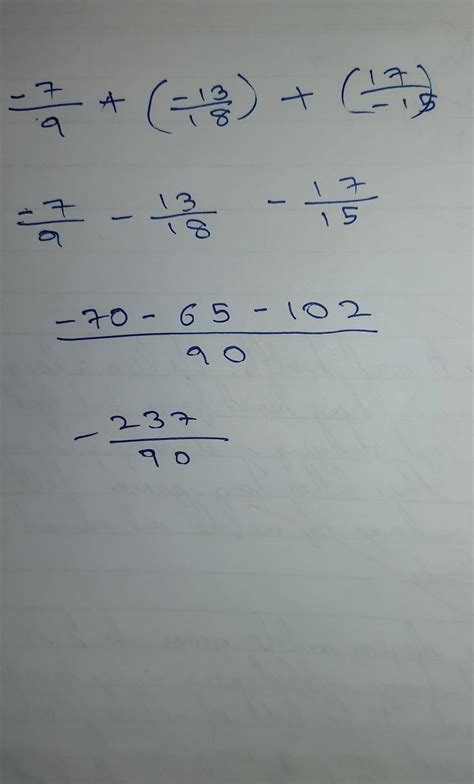 -7/9 + (-13/18) + (17/-15)
-7/9 - 13/18 - 17/15
-70 - 65 - 102 / 90
- 237/90